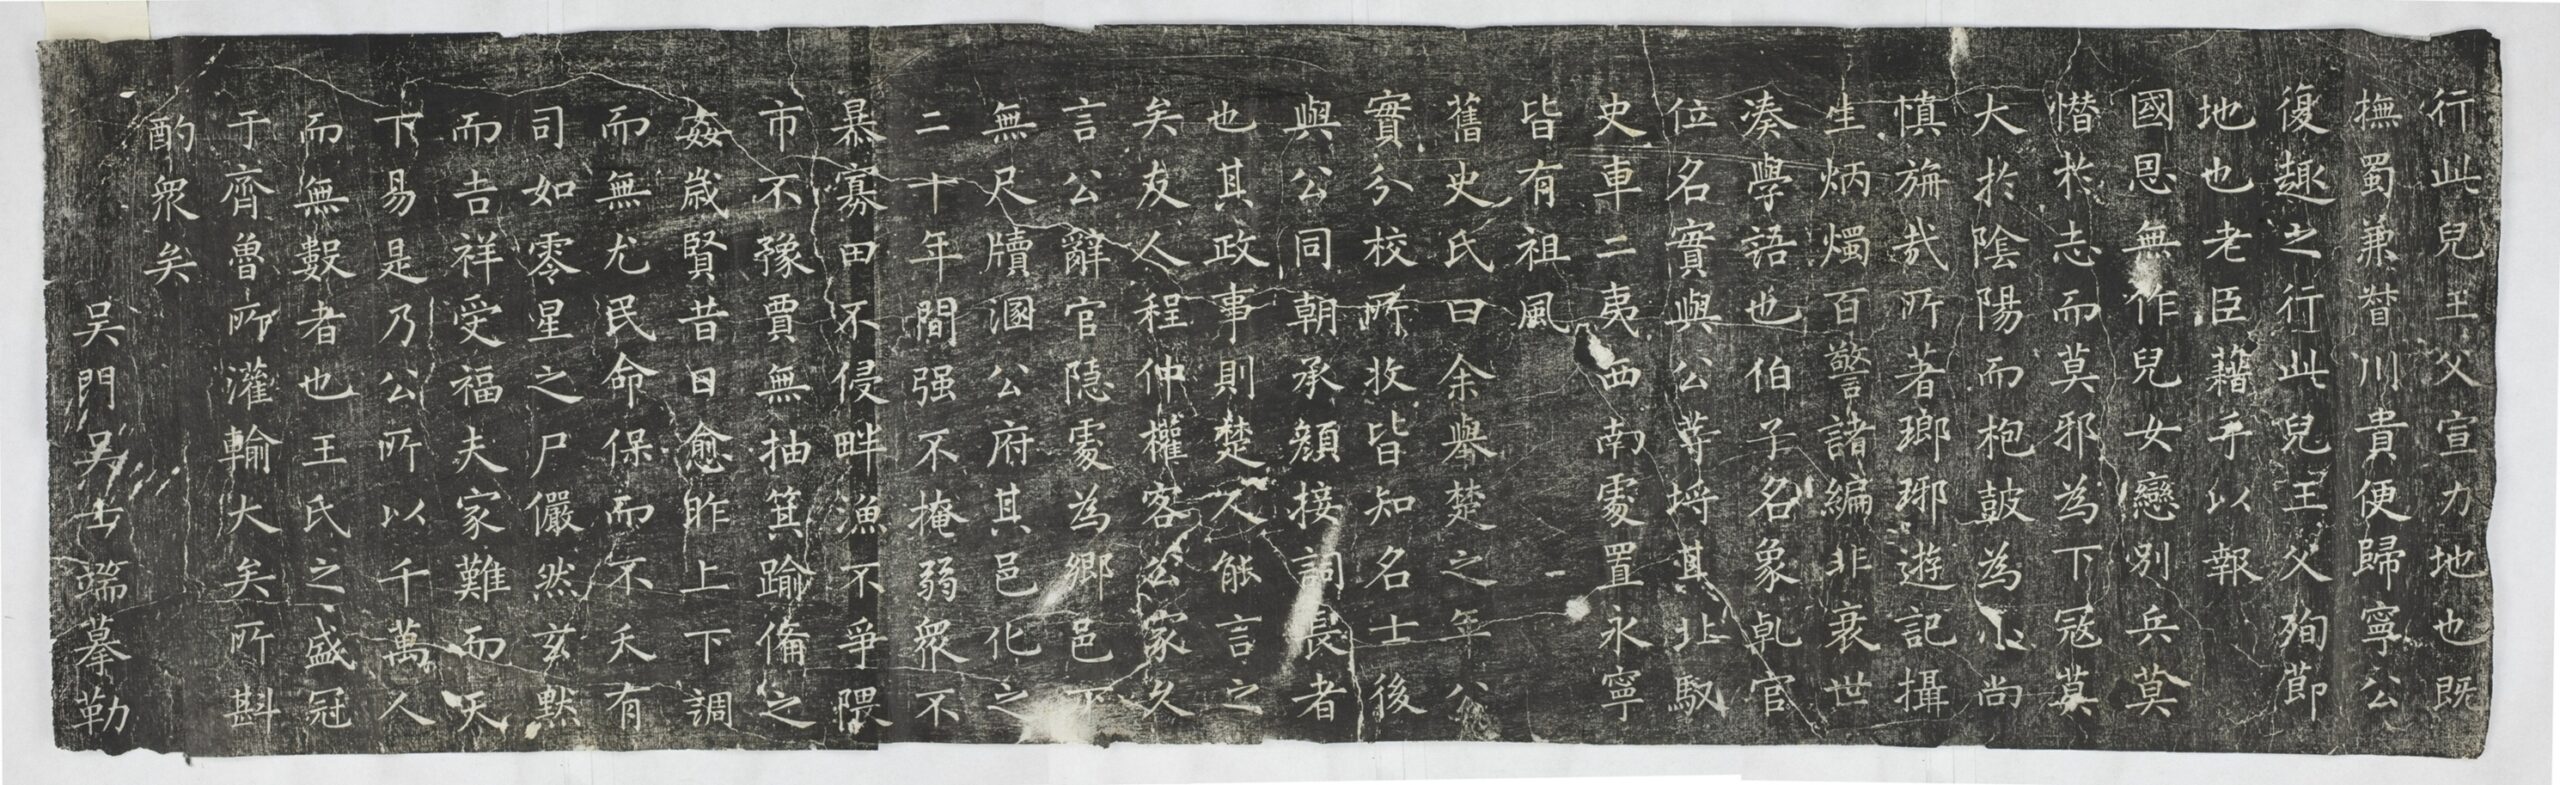 行此兒王父宣力地也既
撫蜀兼督川貴便歸寧公
復趣之行此兒王父殉節
地也老臣藉手以報
國恩無作兒女戀別兵莫
憯於志而莫邪為下寇莫
大於陰陽而枹鼓為小尚
慎旃哉所著瑯琊遊記攝
生炳燭百警諸編非衰世
湊學語也伯子名象乹官
位名實與公等埒其北馭
史車二夷西南處置永寧
皆有祖風
舊史氏曰余舉楚之年公
實分校所收皆知名士後
與公同朝承顔接詞長者
也其政事則楚人能言之
矣友人程仲權客公家久
言公辭官隱處為鄉邑下
無尺牘溷公府其邑化之
二十年間强不掩弱眾不
暴寡田不侵畔漁不爭隈
市不豫賈無抽箕踰備之
姦歲賢昔日愈昨上下調
而無尤民命保而不夭有
司如零星之尸儼然玄默
而吉祥受福夫家難而天
下易是乃公所以千萬人
而無數者也王氏之盛冠
于齊魯所灌輸大矣所斟
酌眾矣
吳門吳士端摹勒